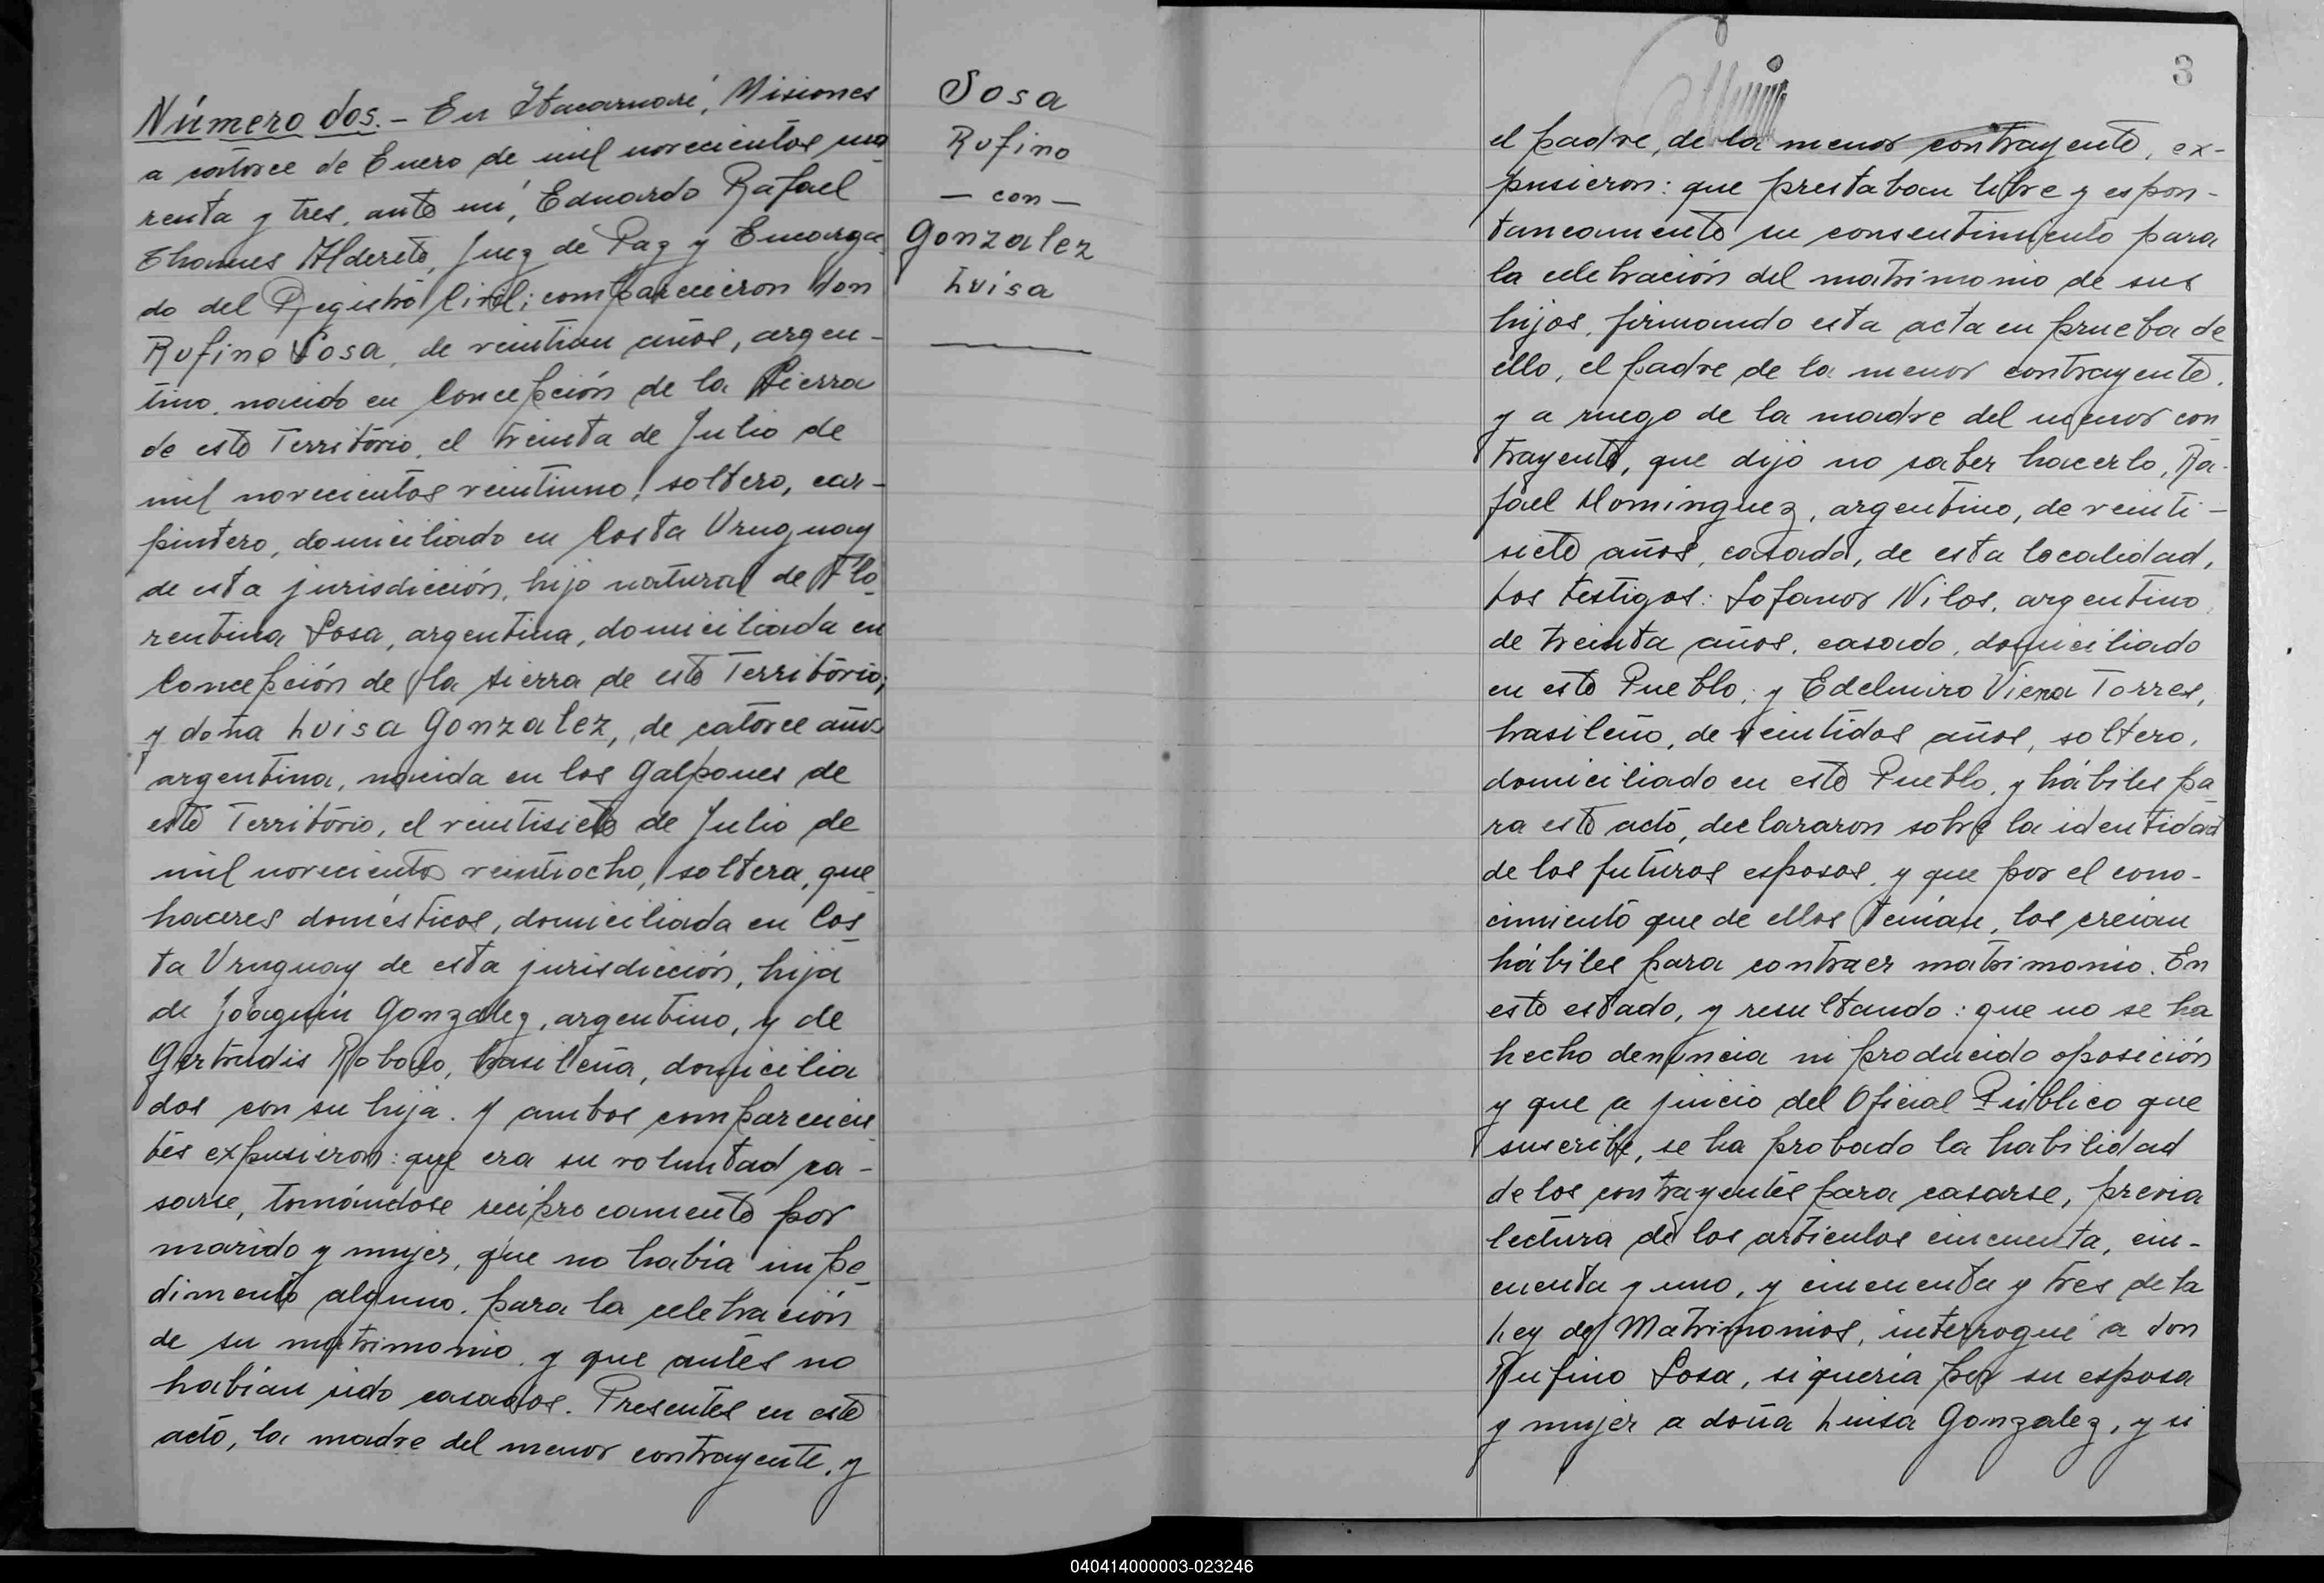 Número dos. - En Itacaruaré, Misiones
a catorce de Enero de mil novecientos cua
renta y tres, ante mí, Eduardo Rafael
Thames Alderete, Juez de Paz y Encarga
do del Registro Civil; comparecieron don
Rufino Sosa, de veintiun años, argen-
tino, nacido en Concepción de la Sierra
de este Territorio, el treinta de Julio de
mil novecientos veintiuno, soltero, car-
pintero, domiciliado en Costa Uruguay
de esta jurisdicción, hijo natural de Flo
rentina Sosa, argentina, domiciliada en
Concepción de la sierra de este Territorio;
y doña Luisa Gonzalez, de catorce años
argentina, nacida en los Galpones de
este Territorio, el veintisiete de Julio de
mil novecientos veintiocho, soltera, que
haceres domésticos, domiciliada en Cos
ta Uruguay de esta jurisdicción, hija
de Joaquín Gonzalez, argentino, y de
Gertrudis, brasileña, domicilia
dos con su hija. Y ambos comparecien
tes expusieron: que era su voluntad ca-
sarse, tomándose reciprocamente por
marido y mujer, que no había impe
dimento alguno, para la celebración
de su matrimonio, y que antes no
habían sido casados. Presentes en este
acto, la madre del menor contrayente, y
Sosa
Rufino
- con -
Gonzalez
Luisa
3
el padre, de la menor contrayente, ex-
pusieron: que prestaban libre y espon-
taneamente su consentimiento para
la celebración del matrimonio de sus
hijos, firmando esta acta en prueba de
ello, el padre de la menor contrayente,
y a ruego de la madre del menor con
trayente, que dijo no saber hacerlo, Ra-
fael Dominguez, argentino, de veinti-
siete años, casado, de esta localidad,
Los testigos: Nilos, argentino,
de treinta años, casado, domiciliado
en este Pueblo; y Edelmiro Viera Torres,
brasileño, de veintidos años, soltero,
domiciliado en este Pueblo, y hábiles pa
ra este acto, declararon sobre la identidad
de los futuros esposos, y que por el cono-
cimiento que de ellos tenían, los creían
hábiles para contraer matrimonio. En
este estado, y resultando: que no se ha
hecho denuncia ni producido oposición
y que a juicio del Oficial Público que
suscribe, se ha probado la habilidad
de los contrayentes para casarse, previa
lectura de los artículos cincuenta, cin-
cuenta y uno, y cincuenta y tres de la
Ley de Matrimonios, interrogué a don
Rufino Sosa, si quería por su esposa
y mujer a doña Luisa Gonzalez, y si
040414000003-023246